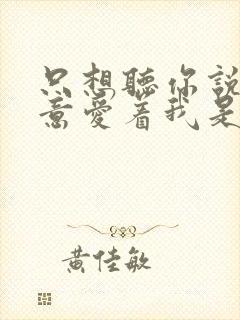 只想聽你說
意愛着我是
黃佳敏